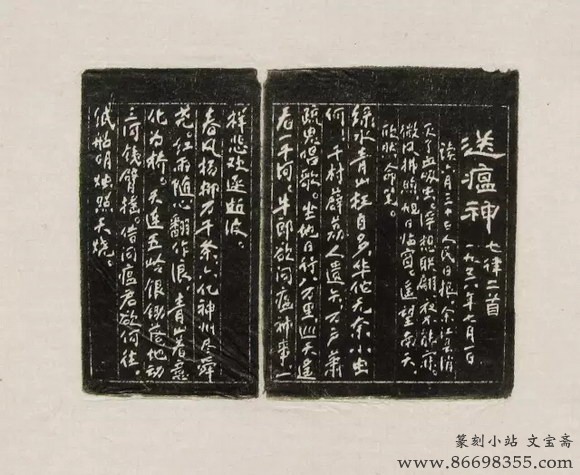 送瘟神 七律二首
一九五八年七月一日
读六月三十日人民日报，余江县消
灭了血吸虫。浮想联翩，夜不能寐。
微风拂煦，旭日临窗。遥望南天，
欣然命笔。
绿水青山枉自多，华佗无奈小虫
何！千村薜荔人遗矢，万户萧
疏鬼唱歌。坐地日行八万里，巡天遥
看一千河。牛郎欲问瘟神事，一
样悲欢逐逝波。
春风杨柳万千条，六亿神州尽舜
尧。红雨随心翻作浪，青山着意
化为桥。天连五岭银锄落，地动
三河铁臂摇。借问瘟君欲何往。
纸船明烛照天烧。
篆刻小站 文宝斋
www.86698355.com